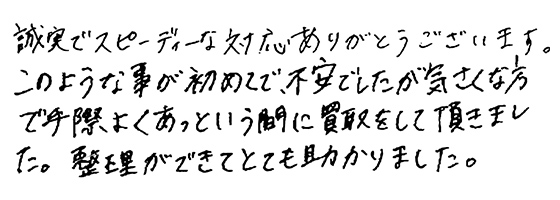 誠実でスピーディーな対応ありがとうございます。
このような事が初めてで、不安でしたが気さくな方
で手際よくあっという間に買取をして頂きまし
た。整理ができてとても助かりました。